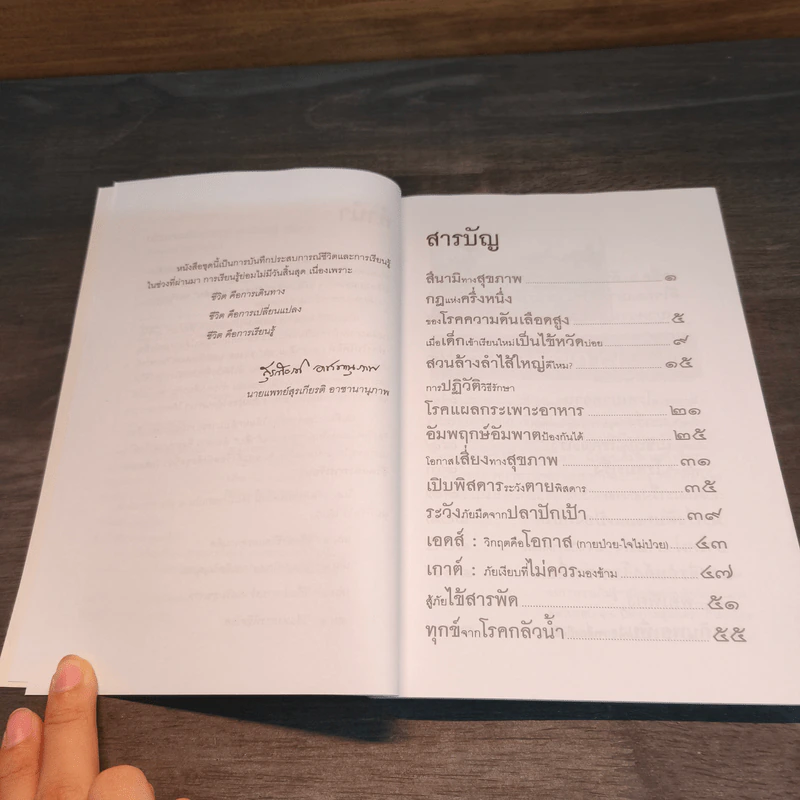 หนังสือชุดนี้เป็นการบันทึกประสบการณ์ชีวิตและการเรียนรู้
ในช่วงที่ผ่านมา การเรียนรู้ย่อมไม่มีวันสิ้นสุด เนื่องเพราะ
ชีวิต คือการเดินทาง
ชีวิต คือการเปลี่ยนแปลง
ชีวิต คือการเรียนรู้
สุรเกียรติ อาชานานุภาพ
นายแพทย์สุรเกียรติ อาชานานุภาพ
สารบัญ
สึนามิทางสุขภาพ ๑
กฎแห่งครึ่งหนึ่ง
ของโรคความดันเลือดสูง ๕
เมื่อเด็กเข้าเรียนใหม่เป็นไข้หวัดบ่อย ๙
สวนล้างลำไส้ใหญ่ดีไหม? ๑๕
การปฏิวัติวิธีรักษา
โรคแผลกระเพาะอาหาร ๒๑
อัมพฤกษ์อัมพาตป้องกันได้ ๒๕
โอกาสเสี่ยงทางสุขภาพ ๓๑
เปิบพิสดารระวังตายพิสดาร ๓๕
ระวังภัยมืดจากปลาปักเป้า ๓๙
เอดส์ : วิกฤตคือโอกาส (กายป่วย-ใจไม่ป่วย) ๔๓
เกาต์ : ภัยเงียบที่ไม่ควรมองข้าม ๔๗
สู้ภัยไข้สารพัด ๕๑
ทุกข์จากโรคกลัวน้ำ ๕๕